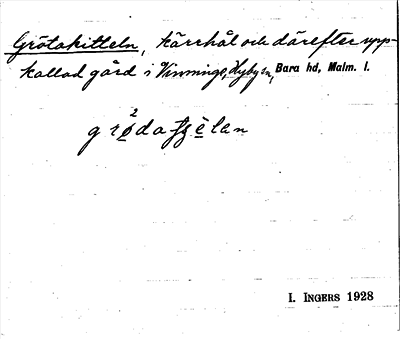 Grötakitteln, kärrhål och därefter upp-
kallad gård i Vinninge, Hyby sn, Bara hd, Malm. l.
2
grödaʃʃèlan
I. INGERS 1928